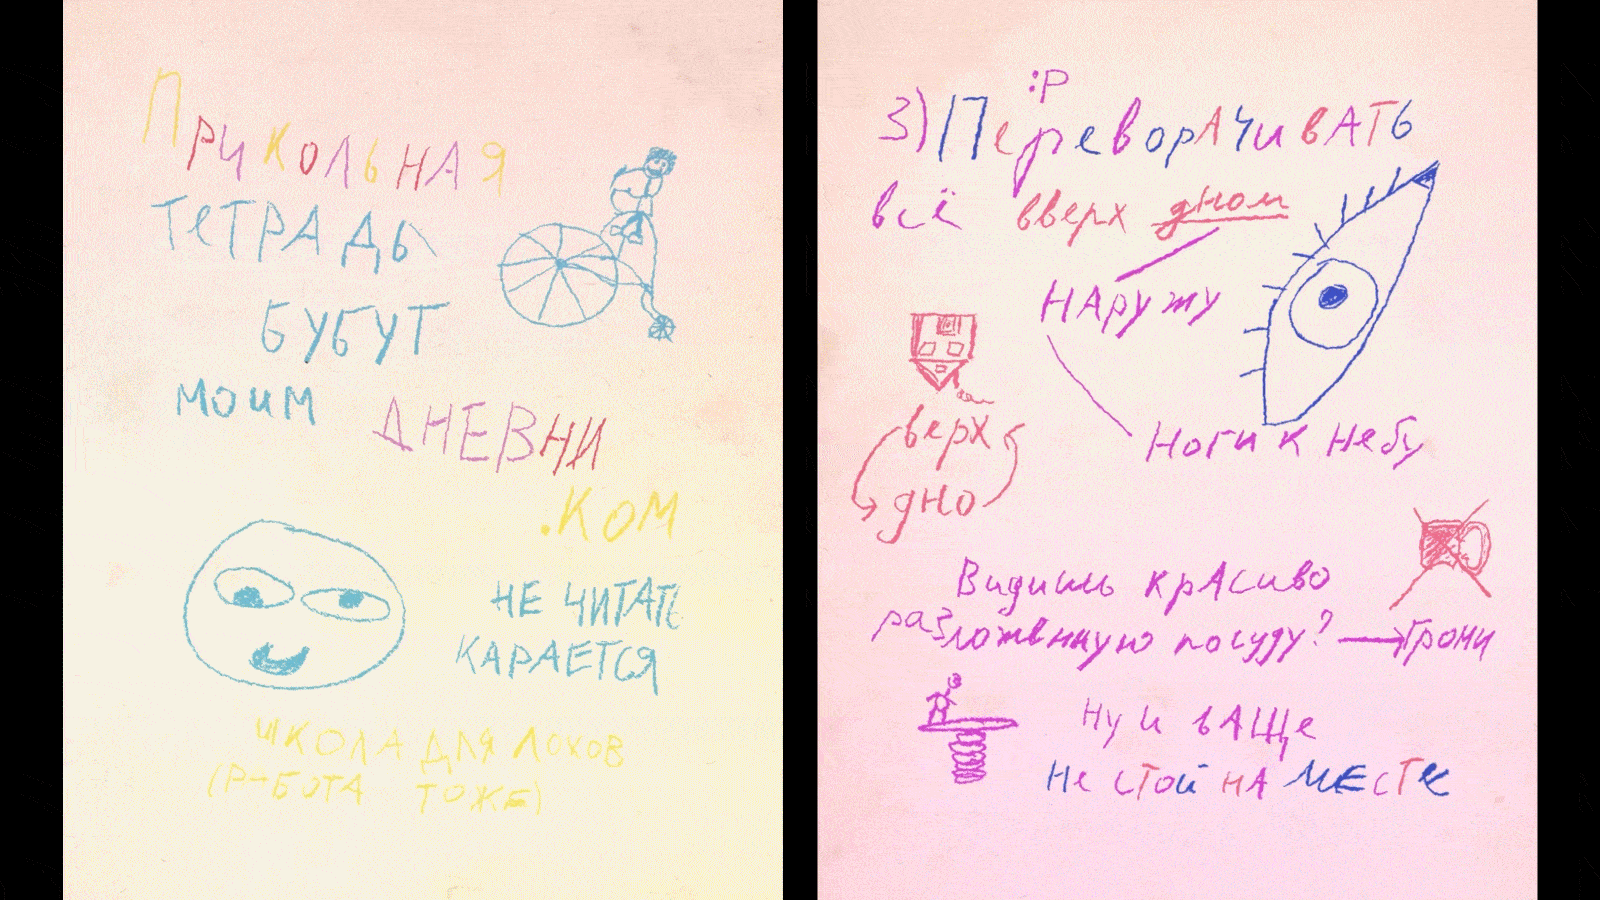 Прикольная
тетрадь
бубут
моим дневни
.ком
не читать
карается
школа для лохов
(р-бота тоже)
:P
3) Переворачивать
всё вверх дном
наружу
верх
дно
Ноги к небу
Видишь красиво
разложенную посуду? → Грохни
Ну и ваще
не стой на месте